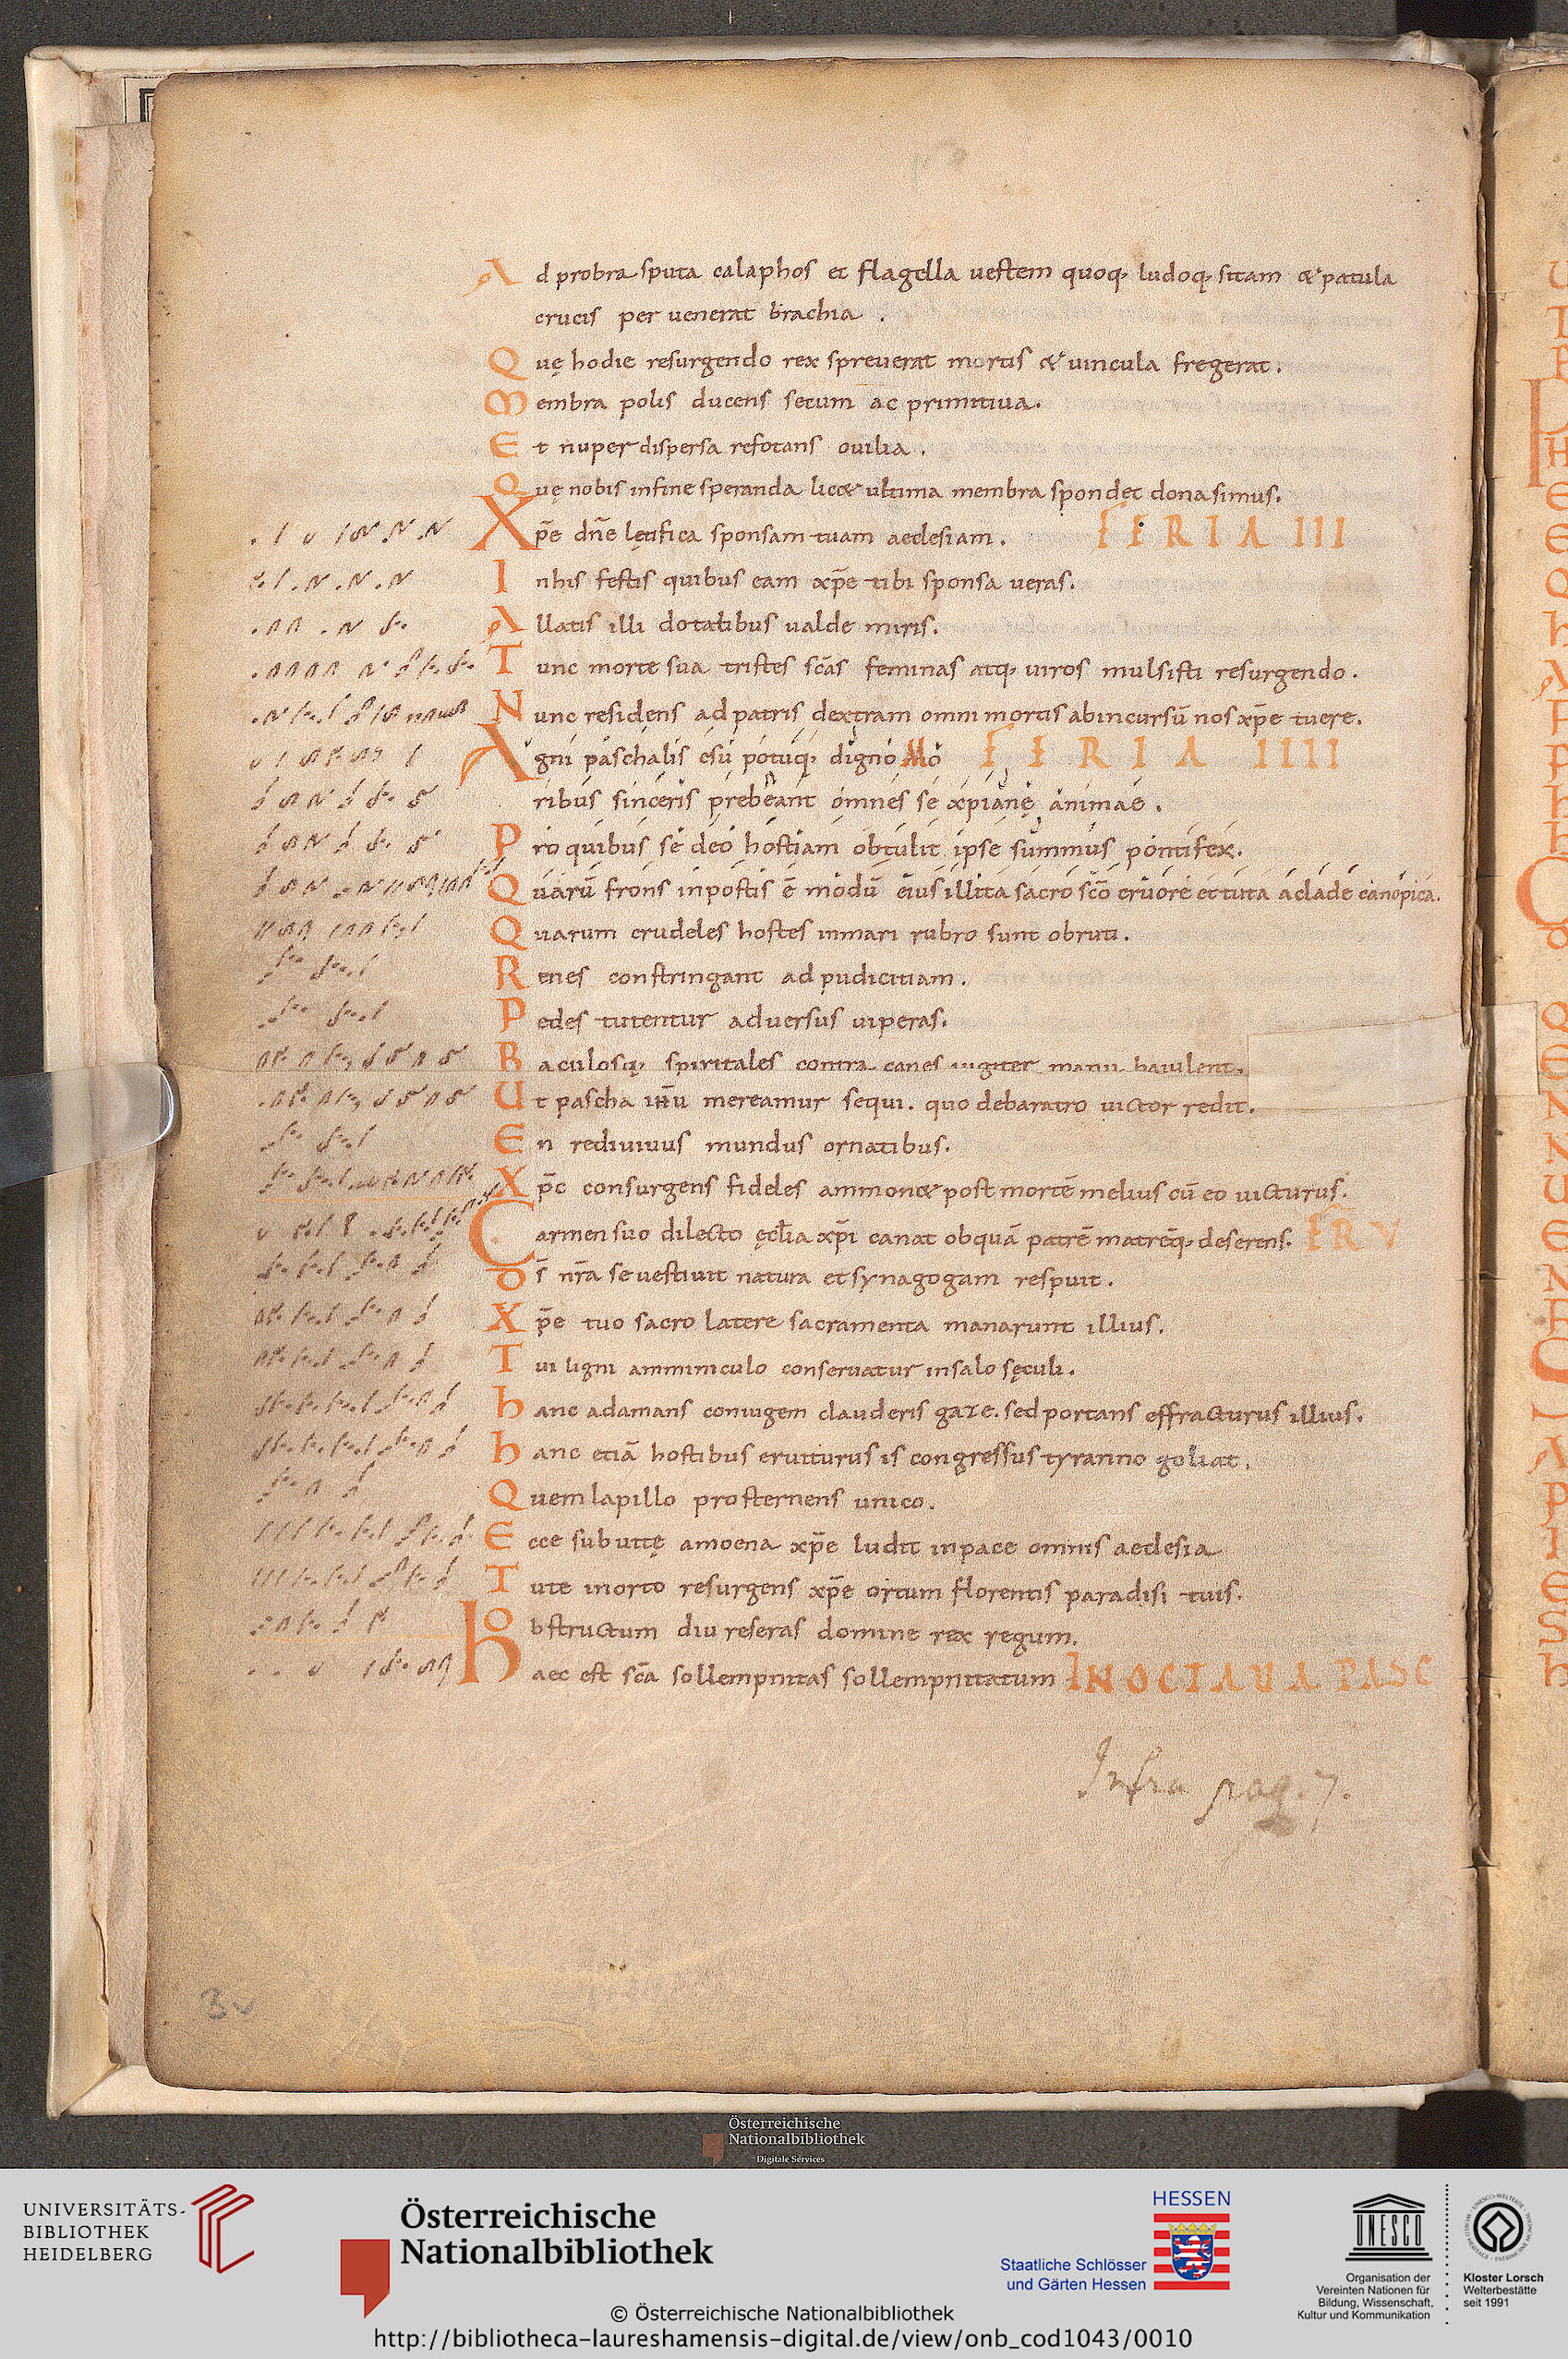 Ad probra sputa calaphos et flagella uestem quoq; ludoq; sitam & patula
crucis per uenerat brachia .
Quę hodie resurgendo rex spreuerat mortis & uincula fregerat.
Membra polis ducens secum ac primitiua.
Et nuper dispersa refotans ouilia .
Quę nobis infine speranda lic& ultima membra spondet dona simus.
Xp̄e dn̄e lętifica sponsam tuam aeclesiam. FERIA III
Inhis festis quibus eam xp̄e tibi sponsa ueras.
Allatis illi dotatibus ualde miris.
Tunc morte sua tristes sc̄as feminas atq; uiros mulsisti resurgendo .
Nunc residens ad patris dextram omni mortis abincursū nos xp̄e tuere.
Agni paschalis esu potuq; digno Mo FERIA IIII
ribus sinceris prebeant omnes se xpianę animae .
Pro quibus se deo hostiam obtulit ipse summus pontifex.
Quarū frons inpostis ē modū eius illita sacro sc̄o cruore et tuta aclade canopica.
Quarum crudeles hostes inmari rubro sunt obruti .
Renes constringant ad pudicitiam .
Pedes tutentur aduersus uiperas.
Baculosq; spiritales contra canes iugiter manu baiulent.
Ut pascha ih̄u mereamur sequi. quo debaratro uictor redit.
En rediuiuus mundus ornatibus.
Xp̄c consurgens fideles ammon& post mortē melius cū eo uicturus.
Carmen suo dilecto ęcl̄ia xp̄i canat obquā patrē matrēq; deserens. FR̄ V
Os̄ nr̄a se uestiuit natura et synagogam respuit .
Xp̄e tuo sacro latere sacramenta manarunt illius.
Tui ligni amminiculo conseruatur insalo sęculi .
hanc adamans coniugem clauderis gaze. sed portans effracturus illius.
hanc etiā hostibus eruiturus is congressus tyranno goliat.
Quem lapillo prosternens unico.
Ecce sub uitę amoena xp̄e ludit inpace omnis aeclesia
Tute inorto resurgens xp̄e ortum florentis paradisi tuis.
Obstructum diu reseras domine rex regum.
haec est sc̄a sollempnitas sollempnitatum IN OCTAUA PASC
Infra pag. 7.
3v
Österreichische
Nationalbibliothek
Digitale Services
UNIVERSITÄTS-
BIBLIOTHEK
HEIDELBERG
Österreichische
Nationalbibliothek
HESSEN
Staatliche Schlösser
und Gärten Hessen
UNESCO
Organisation der
Vereinten Nationen für
Bildung, Wissenschaft,
Kultur und Kommunikation
Kloster Lorsch
Welterbestätte
seit 1991
© Österreichische Nationalbibliothek
http://bibliotheca-laureshamensis-digital.de/view/onb_cod1043/0010